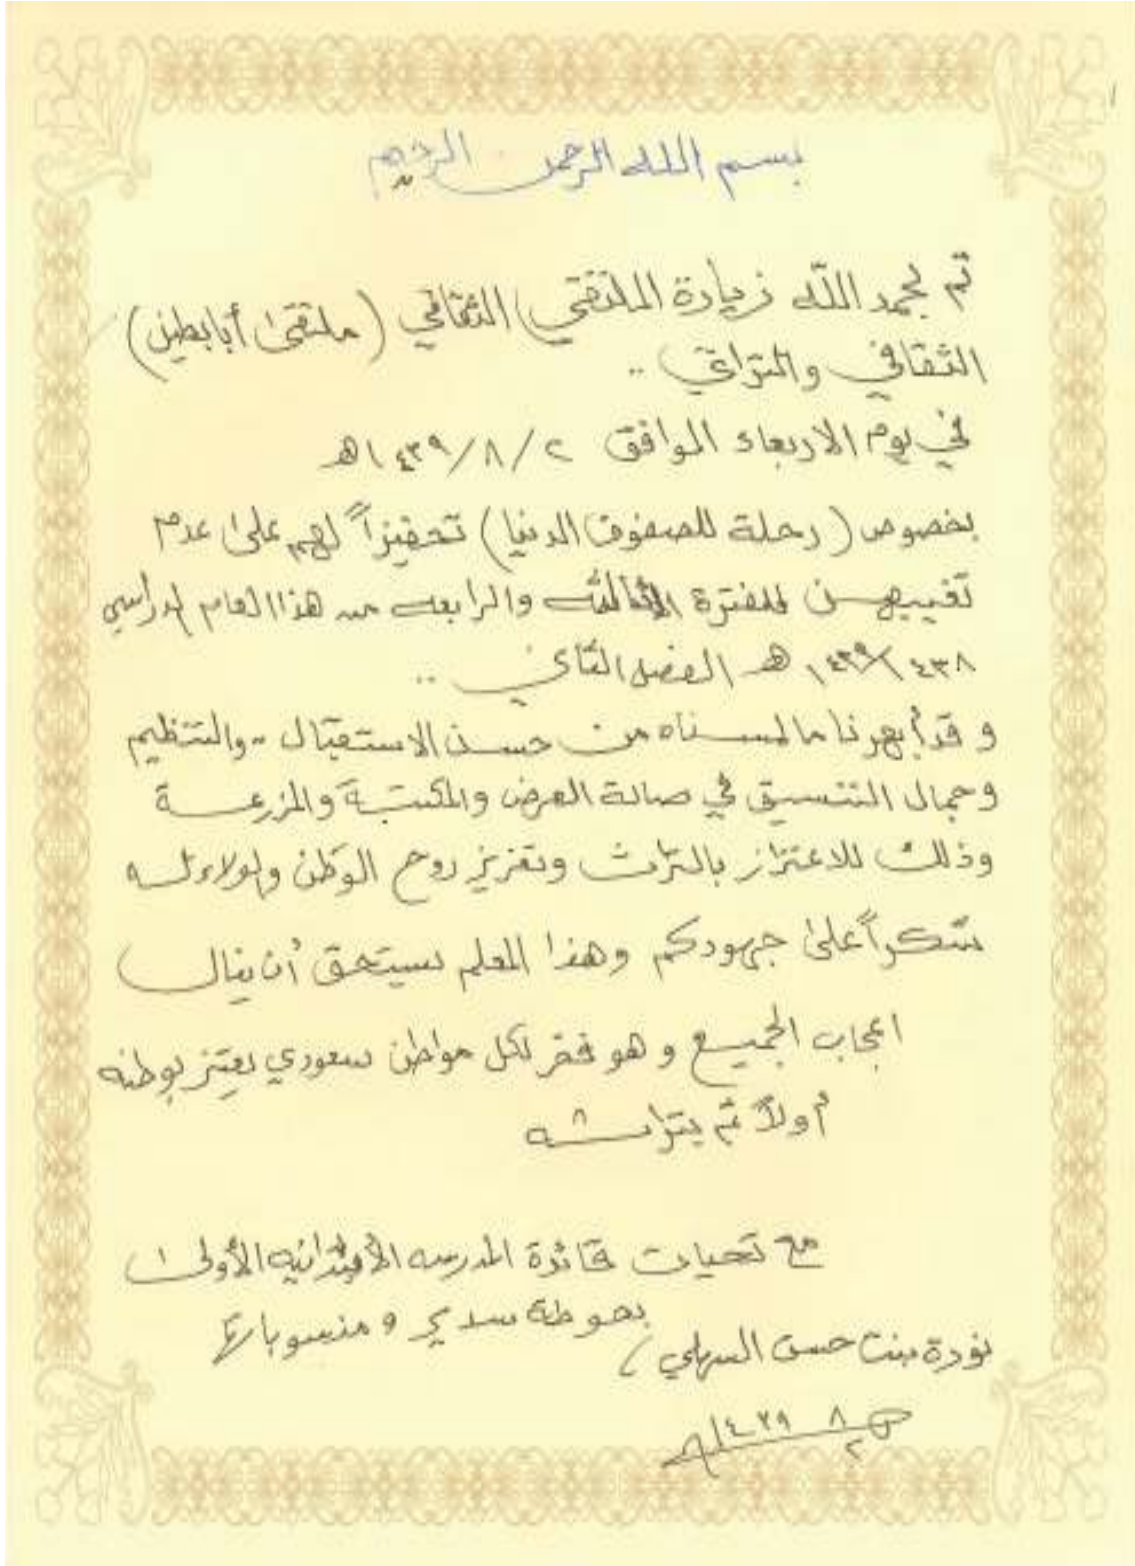 بسم الله الرحمن الرحيم
تم بحمد الله زيارة الملتقى الثقافي (ملتقى أبابطين)
الثقافي والتراثي ..
في يوم الاربعاء الموافق ٢ / ٨ / ١٤٣٩هـ
بخصوص (رحلة للصفوف الدنيا) تحفيزاً لهم على عدم
تغيبهن للفترة الثالثه والرابعه من هذا العام الدراسي
١٤٣٨ / ١٤٣٩ هـ الفصل الثاني ..
و قد أبهرنا ما لمسناه من حسن الاستقبال - والتنظيم
وجمال التنسيق في صالة العرض والمكتبة والمزرعة
وذلك للاعتزاز بالتراث وتعزيز روح الوطن والولاء له
شكراً على جهودكم وهذا المعلم يستحق أن ينال
اعجاب الجميع و هو فخر لكل مواطن سعودي يعتز بوطنه
أولاً ثم بتراثه
مع تحيات قائدة المدرسه الابتدائيه الأولى
بحوطة سدير و منسوباتها
نورة بنت حسن السهلي /
٢ / ٨ / ١٤٣٩هـ